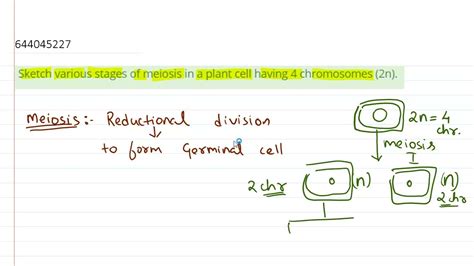 644045227
Sketch various stages of meiosis in a plant cell having 4 chromosomes (2n).
Meiosis:- Reductional division
to form Germinal cell
2n = 4
chr.
meiosis
I
2 chr
(n)
(n)
2 chr